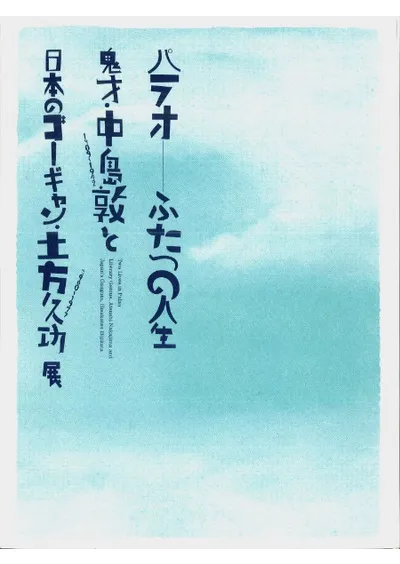 パラオ──ふたつの人生
鬼才・中島敦と
1909-1942
日本のゴーギャン・土方久功展
1900-1977
Two Lives in Palau
Literary Genius, Atsushi Nakajima and
Japan's Gauguin, Hisakatsu Hijikata